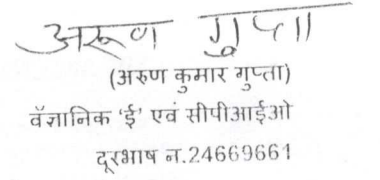 अरूण गुप्ता
(अरुण कुमार गुप्ता)
वॅज्ञानिक 'ई' एवं सीपीआईओ
दूरभाष न.24669661